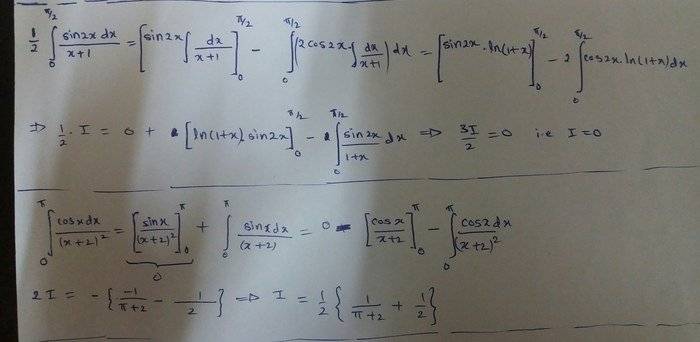 ½ ∫₀^{π/2} sin2x dx/(x+1) = [sin2x ∫ dx/(x+1)]₀^{π/2} − ∫₀^{π/2} (2cos2x ∫ dx/(x+1)) dx = [sin2x · ln(1+x)]₀^{π/2} − 2 ∫₀^{π/2} cos2x · ln(1+x) dx
⇒ ½ · I = 0 + [ln(1+x) sin2x]₀^{π/2} − ∫₀^{π/2} sin2x/(1+x) dx ⇒ 3I/2 = 0 i.e I = 0
∫₀^π cosx dx/(x+2)² = [sinx/(x+2)²]₀^π + ∫₀^π sinx dx/(x+2) = 0 − [cosx/(x+2)]₀^π − ∫₀^π cosx dx/(x+2)²
0
2I = −{−1/(π+2) − 1/2} ⇒ I = ½ {1/(π+2) + ½}